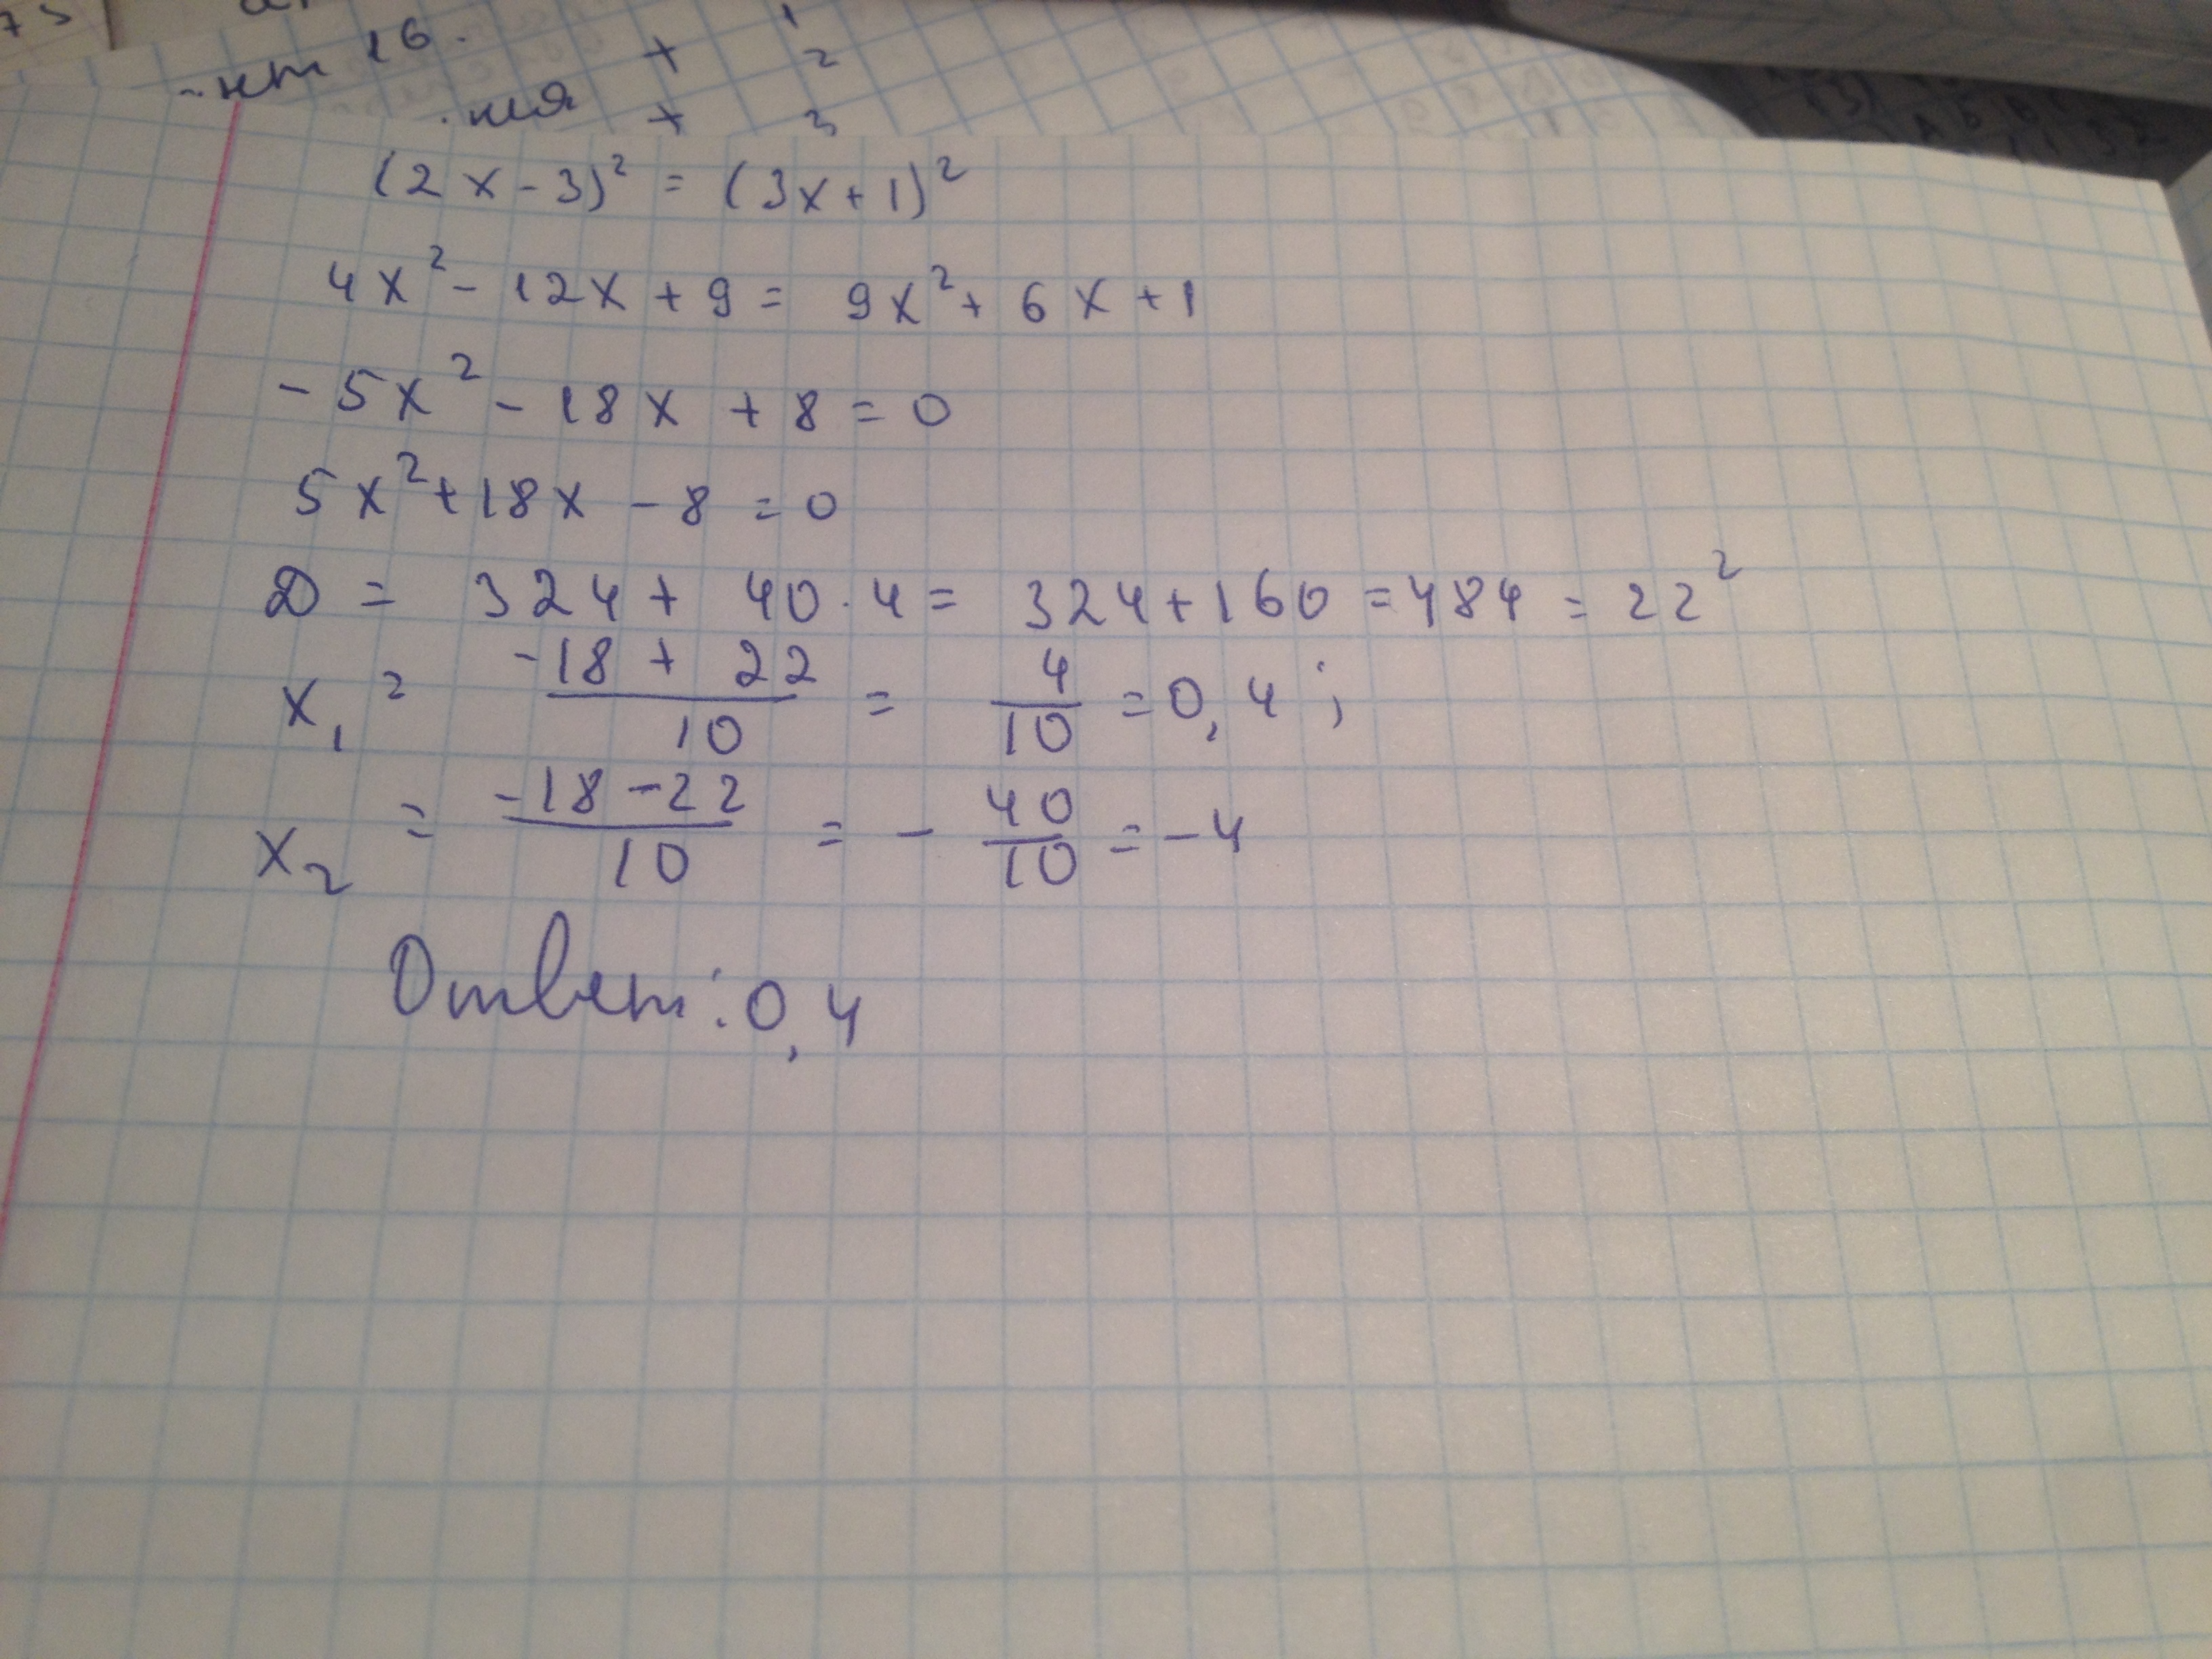 16.
+ 2
+ 3
(2x-3)² = (3x+1)²
4x² - 12x + 9 = 9x² + 6x + 1
- 5x² - 18x + 8 = 0
5x² + 18x - 8 = 0
D = 324 + 40 · 4 = 324 + 160 = 484 = 22²
x₁ = \frac{-18 + 22}{10} = \frac{4}{10} = 0,4 ;
x₂ = \frac{-18 - 22}{10} = - \frac{40}{10} = -4
Ответ: 0,4